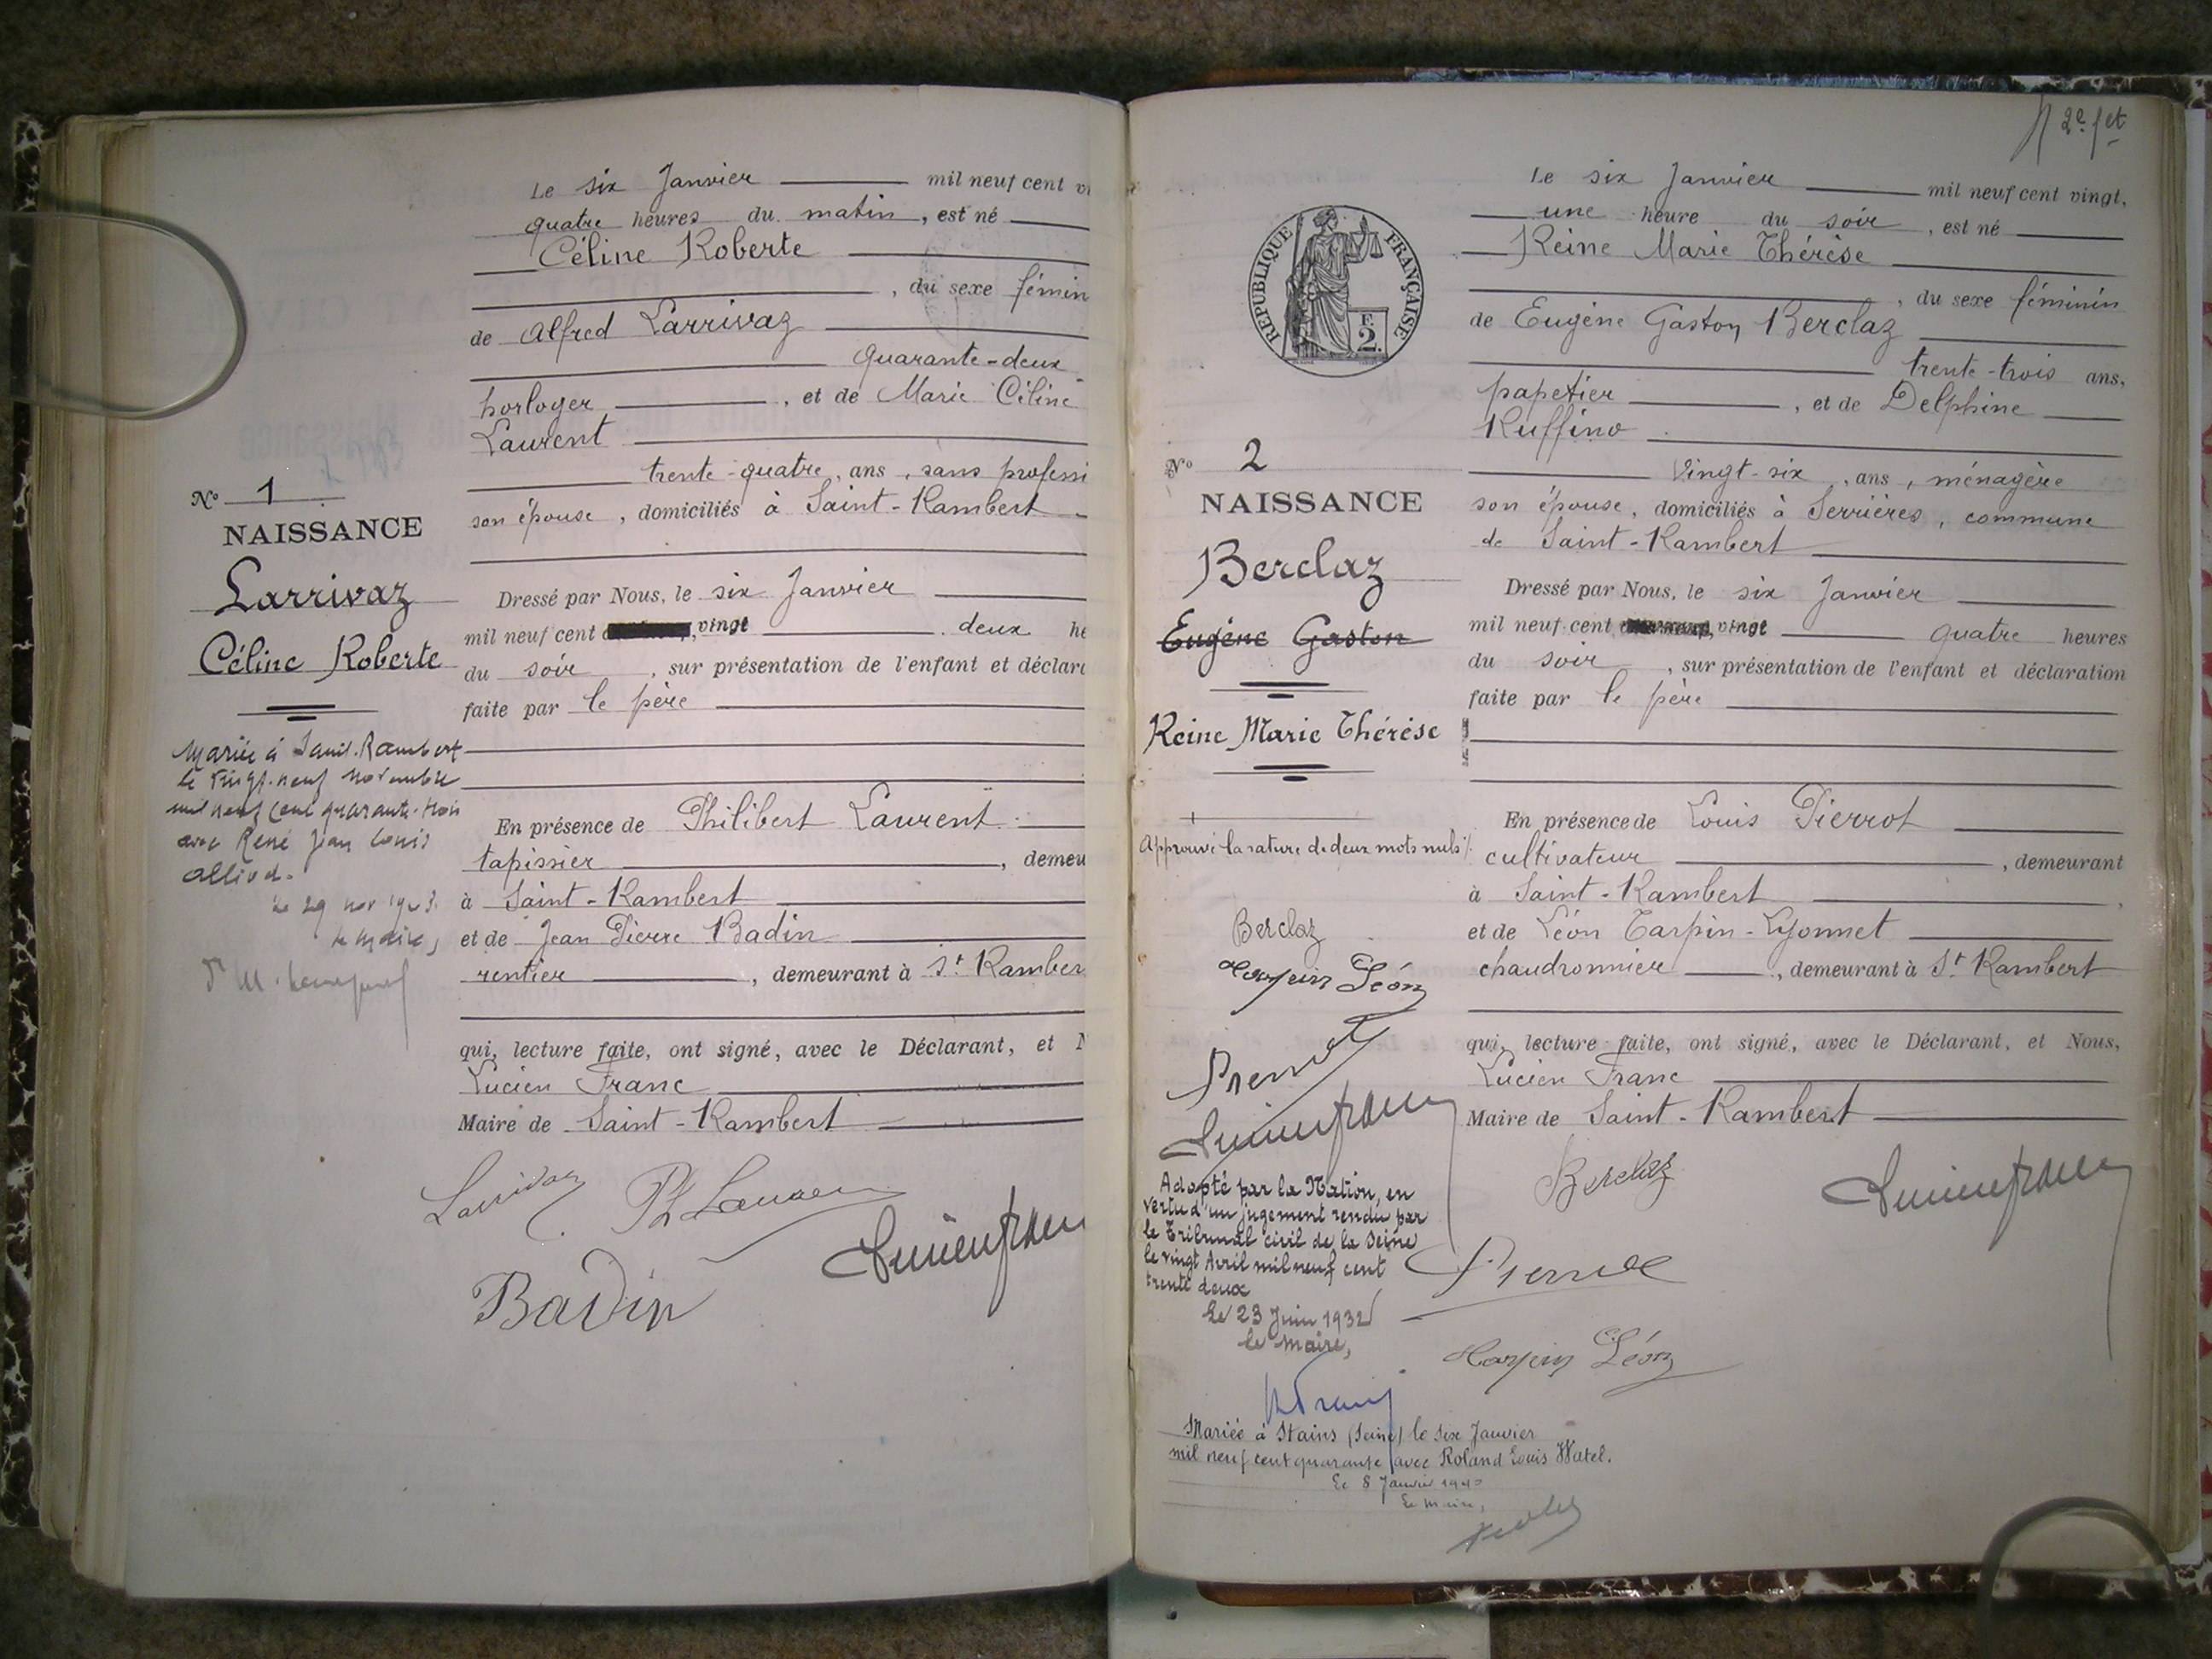 Le six Janvier mil neuf cent
quatre heures du matin, est né
Céline Roberte
, du sexe fémin
de Alfred Larrivaz
quarante-deux
horloger, et de Marie Céline
Laurent
trente-quatre, ans, sans professi
son épouse, domiciliés à Saint-Rambert
N° 1
NAISSANCE
Larrivaz
Céline Roberte
Dressé par Nous, le six Janvier
mil neuf cent vingt deux he
du soir, sur présentation de l'enfant et déclara
faite par le père
Mariée à Saint-Rambert
le vingt-neuf novembre
mil neuf cent quarante-trois
avec René Jean Louis
Alliod.
Le 29 nov 1943.
le Maire,
En présence de Philibert Laurent
tapissier, demeu
à Saint-Rambert
et de Jean Pierre Badin
rentier, demeurant à St Ramber
qui, lecture faite, ont signé, avec le Déclarant, et N
Lucien Franc
Maire de Saint-Rambert
Larrivaz
Ph Laurent
Badin
Lucien Franc
2e fet
RÉPUBLIQUE FRANÇAISE
F.
2.
Le six Janvier mil neuf cent vingt,
une heure du soir, est né
Reine Marie Thérèse
, du sexe féminin
de Eugène Gaston Berclaz
trente-trois ans,
papetier, et de Delphine
Ruffino
vingt-six, ans, ménagère
son épouse, domiciliés à Serrières, commune
de Saint-Rambert
N° 2
NAISSANCE
Berclaz
Eugène Gaston
Reine Marie Thérèse
Dressé par Nous, le six Janvier
mil neuf cent vingt quatre heures
du soir, sur présentation de l'enfant et déclaration
faite par le père
En présence de Louis Pierrot
cultivateur, demeurant
à Saint-Rambert,
et de Léon Tarpin-Lyonnet
chaudronnier, demeurant à St Rambert
qui, lecture faite, ont signé, avec le Déclarant, et Nous,
Lucien Franc
Maire de Saint-Rambert
Approuvé la rature de deux mots nuls
Berclaz
Tarpin Léon
Pierrot
Lucien Franc
Adopté par la Nation, en
vertu d'un jugement rendu par
le Tribunal civil de la Seine
le vingt Avril mil neuf cent
trente deux
Le 23 Juin 1932
le Maire,
Berclaz
Lucien Franc
Pierrot
Tarpin Léon
Mariée à Stains (Seine) le six Janvier
mil neuf cent quarante avec Roland Louis Watel.
Le 8 Janvier 1940
Le Maire,